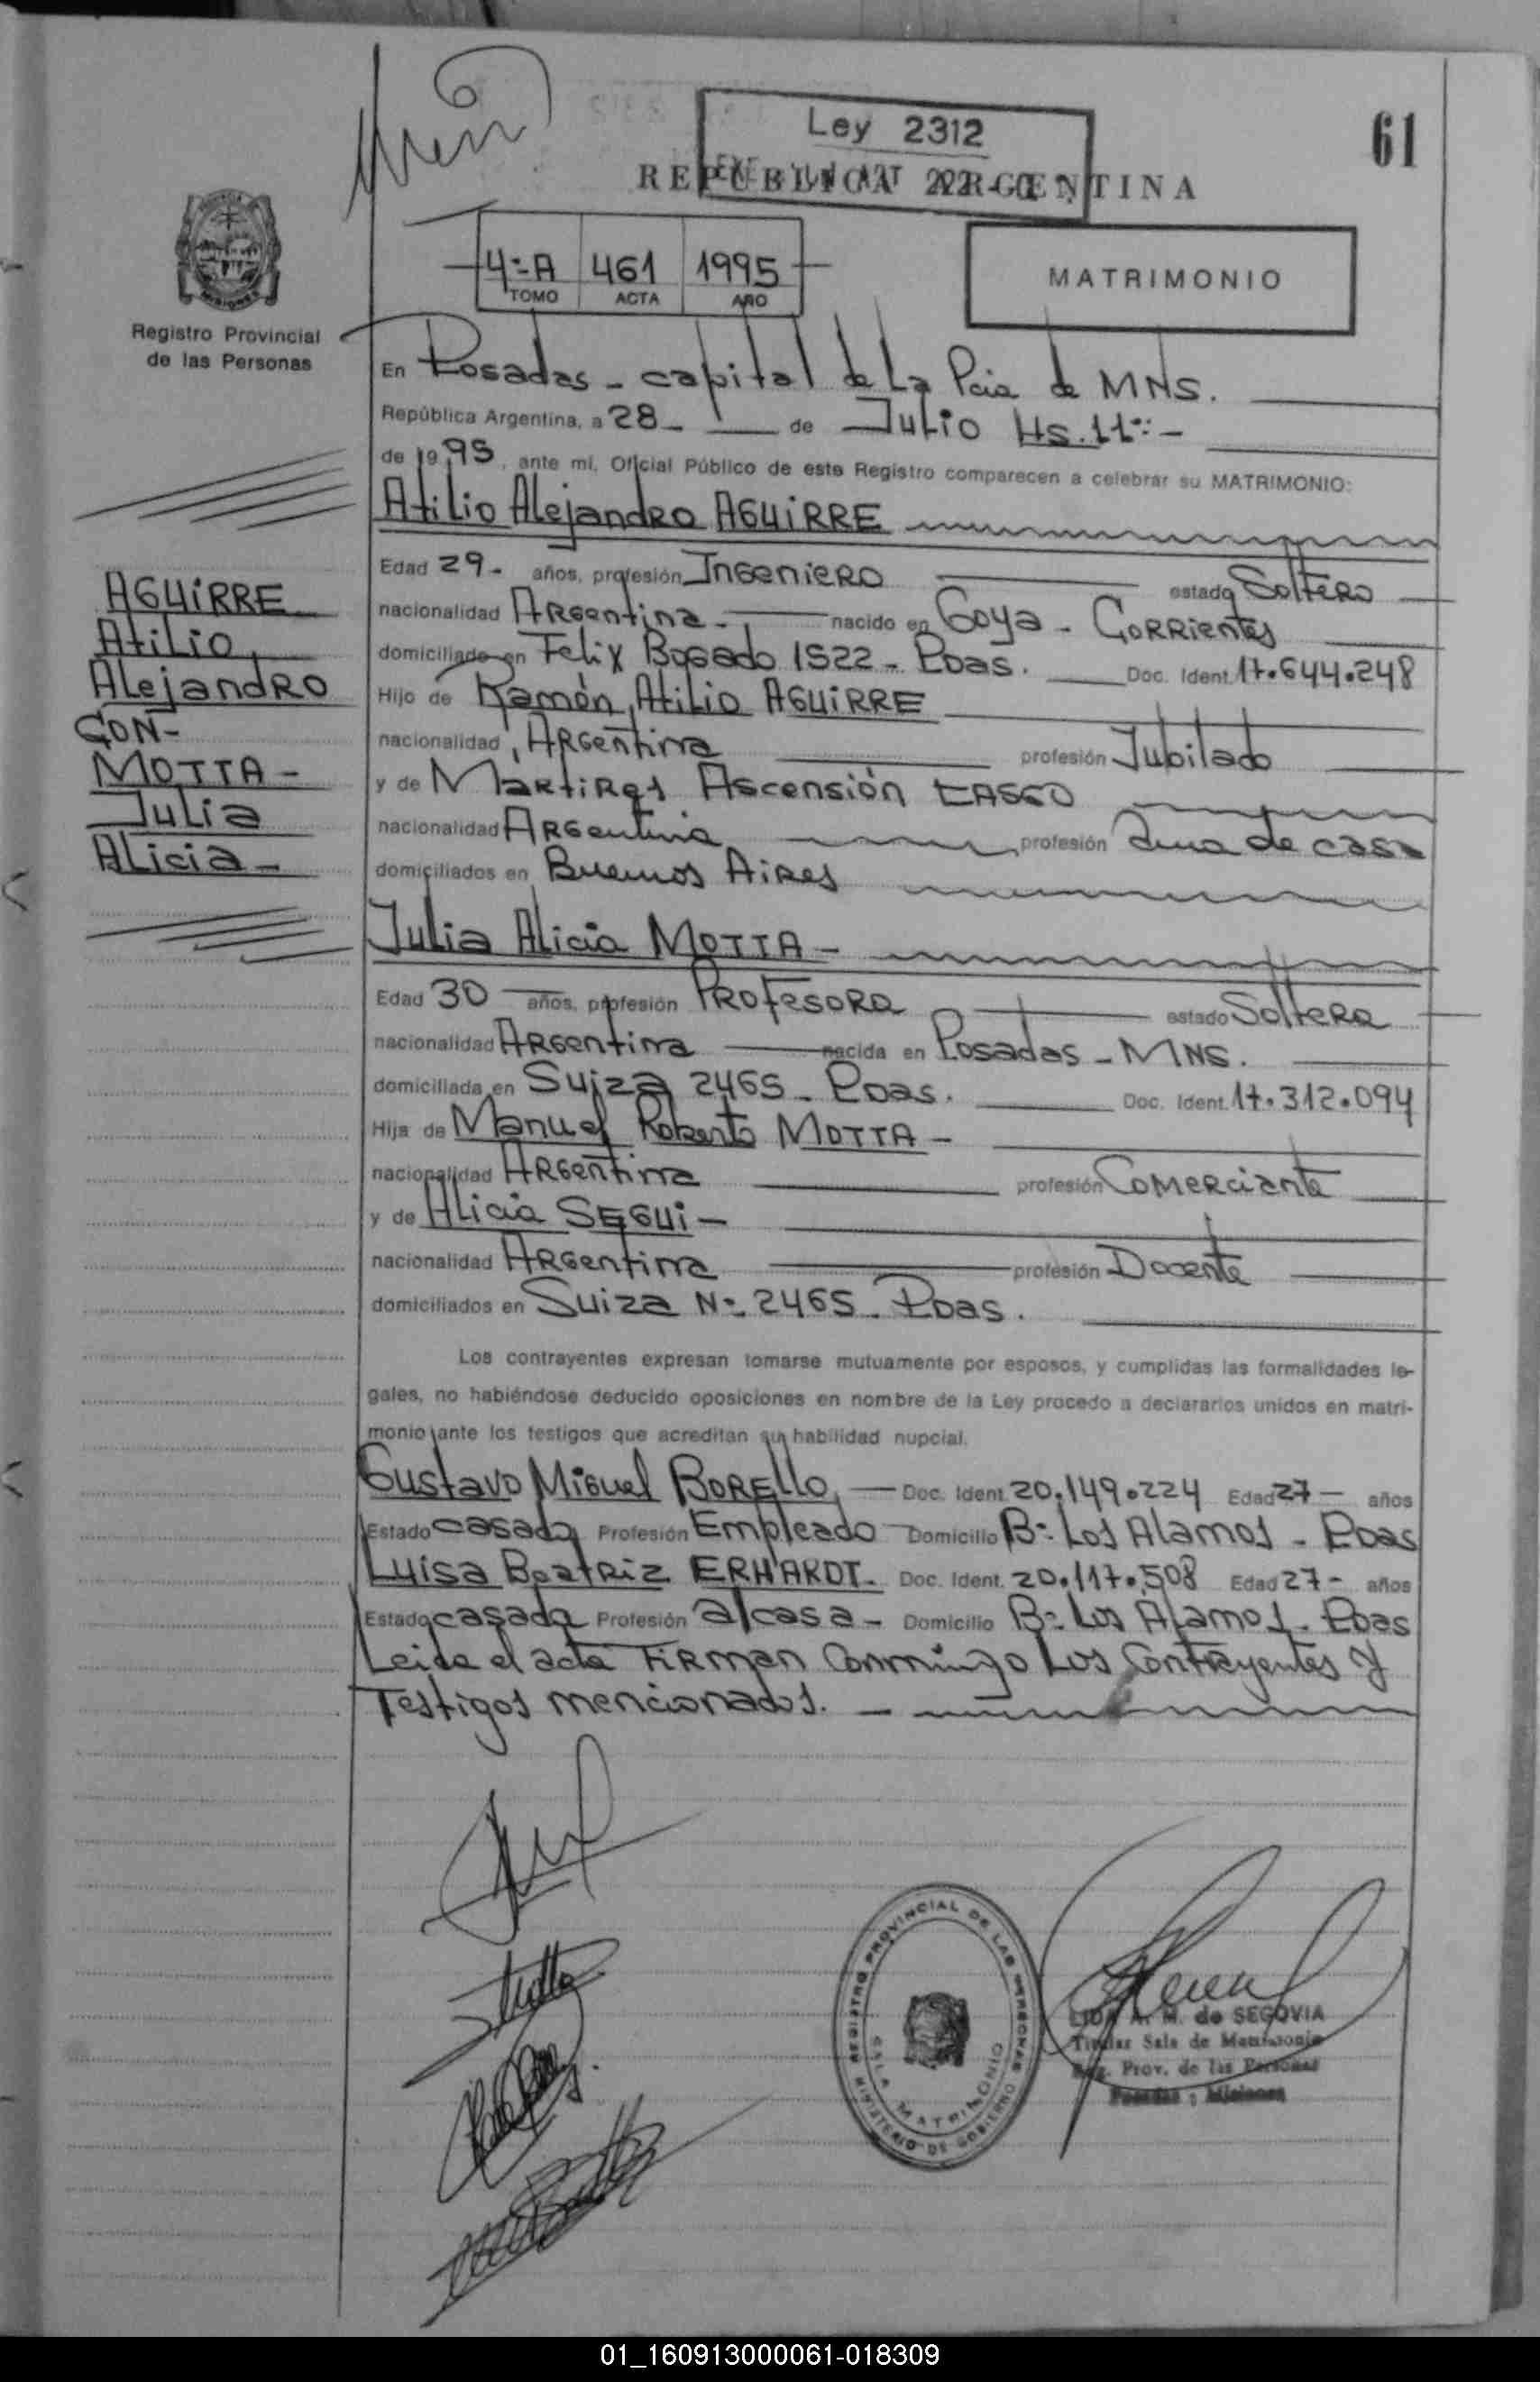 61
Ley 2312
REPUBLICA ARGENTINA
4º-A 461 1995
TOMO ACTA AÑO
MATRIMONIO
MISIONES
Registro Provincial
de las Personas
En Posadas - capital de La Pcia de MNS.
República Argentina, a 28 - de Julio Hs. 11:-
de 1995, ante mi, Oficial Público de este Registro comparecen a celebrar su MATRIMONIO:
Atilio Alejandro AGUIRRE
Edad 29 - años, profesión Ingeniero estado Soltero
nacionalidad Argentina - nacido en Goya - Corrientes
domiciliado en Felix Bogado 1522 - Pdas. Doc. Ident. 17.644.248
Hijo de Ramón Atilio AGUIRRE
nacionalidad Argentina profesión Jubilado
y de Martires Ascensión
nacionalidad Argentina profesión Ama de casa
domiciliados en Buenos Aires
AGUIRRE
Atilio
Alejandro
CON-
MOTTA-
Julia
Alicia-
Julia Alicia MOTTA -
Edad 30 años, profesión Profesora estado Soltera
nacionalidad Argentina nacida en Posadas - MNS.
domiciliada en Suiza 2465 - Pdas. Doc. Ident. 17.312.094
Hija de Manuel Roberto MOTTA -
nacionalidad Argentina profesión Comerciante
y de Alicia SEGUI -
nacionalidad Argentina profesión Docente
domiciliados en Suiza Nº 2465 - Pdas.
Los contrayentes expresan tomarse mutuamente por esposos, y cumplidas las formalidades le-
gales, no habiéndose deducido oposiciones en nombre de la Ley procedo a declararlos unidos en matri-
monio ante los testigos que acreditan su habilidad nupcial.
Gustavo Miguel BORELLO - Doc. Ident. 20.149.224 Edad 27 - años
Estado casado Profesión Empleado Domicilio Bº Los Alamos - Pdas
Luisa Beatriz ERHARDT - Doc. Ident. 20.117.508 Edad 27 - años
Estado casada Profesión a/casa - Domicilio Bº Los Alamos - Pdas
Leida el acta Firman Conmingo Los Contrayentes y
Testigos mencionados.
REGISTRO PROVINCIAL DE LAS PERSONAS
SALA MATRIMONIO
MINISTERIO DE GOBIERNO
LIDA A. M. de SEGOVIA
Titular Sala de Matrimonio
Reg. Prov. de las Personas
Posadas - Misiones
01_160913000061-018309